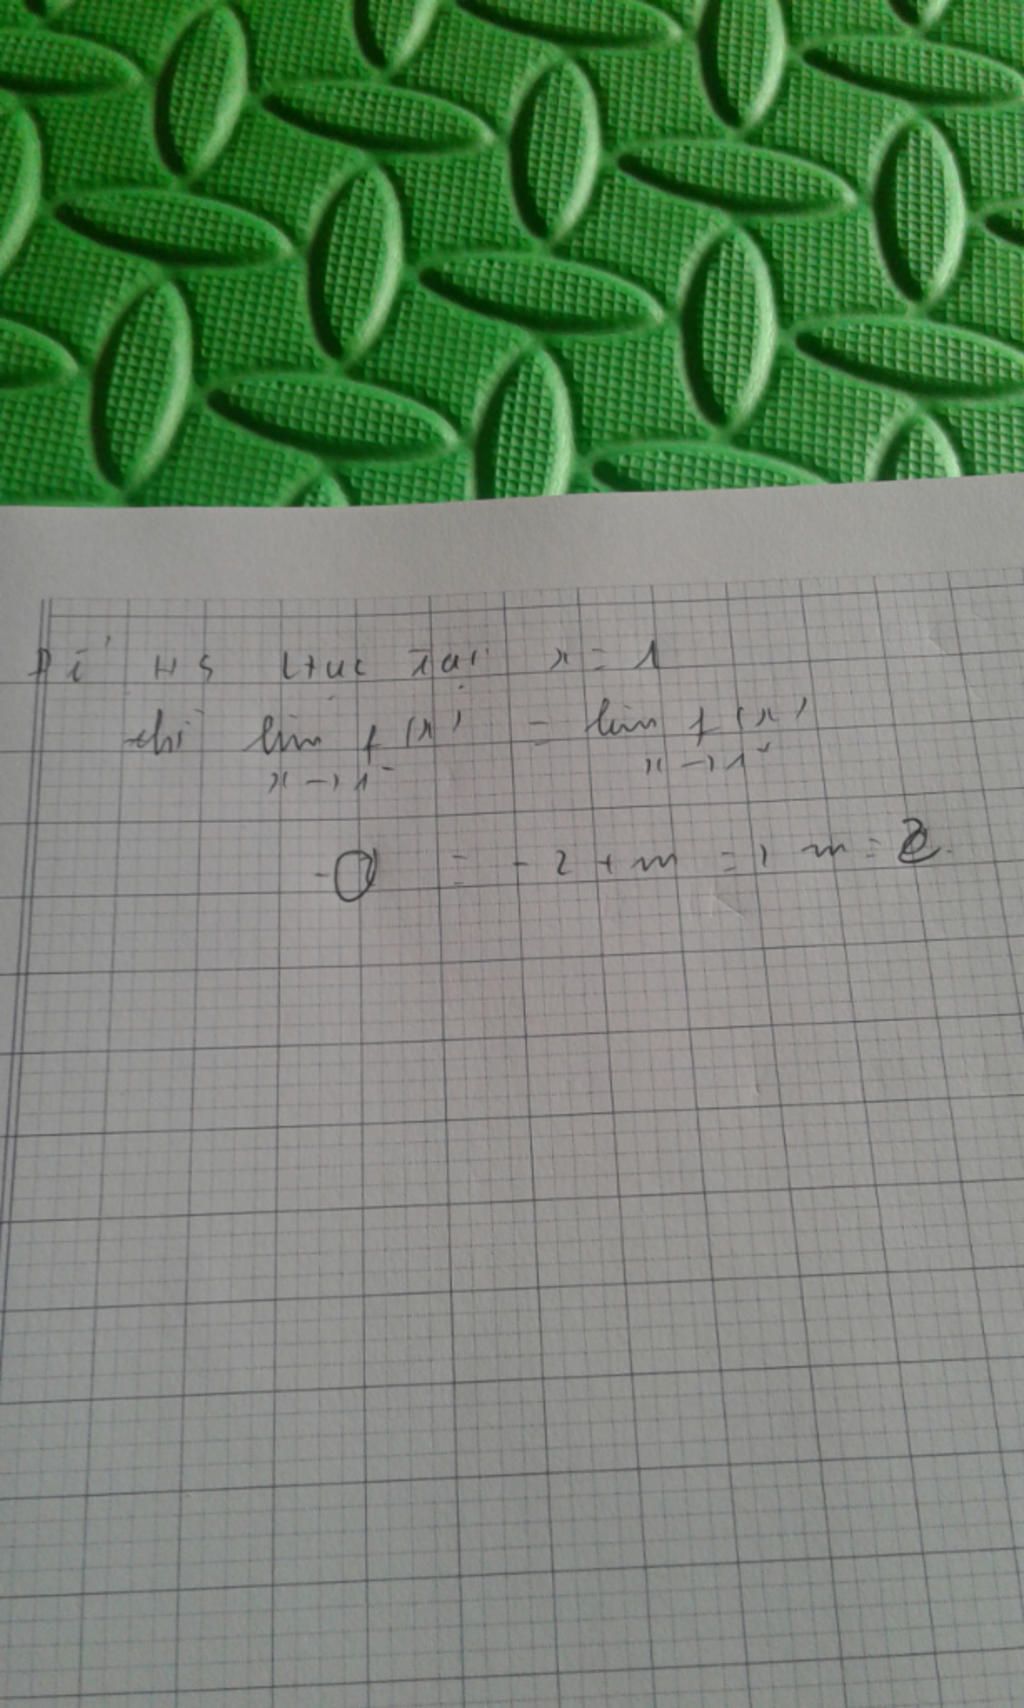 Để HS ltục tại x = 1
thì lim f(x) = lim f(x)
x→1⁻ x→1⁺
0 = -2 + m => m = 2.